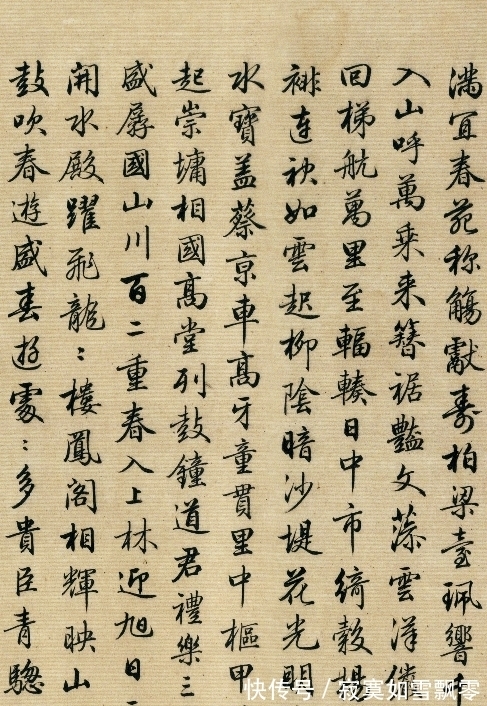 滿宜春苑称觴獻壽柏梁臺珮響
入山呼萬乗来簪裾豔文藻雲漢
回梯航萬里至輻輳日中市綺縠揚
裶連袂如雲起柳陰暗沙堤花光
水寶盖蔡京車高牙童貫里中樞甲
起崇墉相國高堂列鼓鐘道君禮樂三
盛孱國山川百二重春入上林迎旭日
開水殿躍飛龍〻樓鳳閣相輝映山
鼓吹春遊盛春遊處〻多貴臣青驄
快传号 / 寂寞如雪飘零